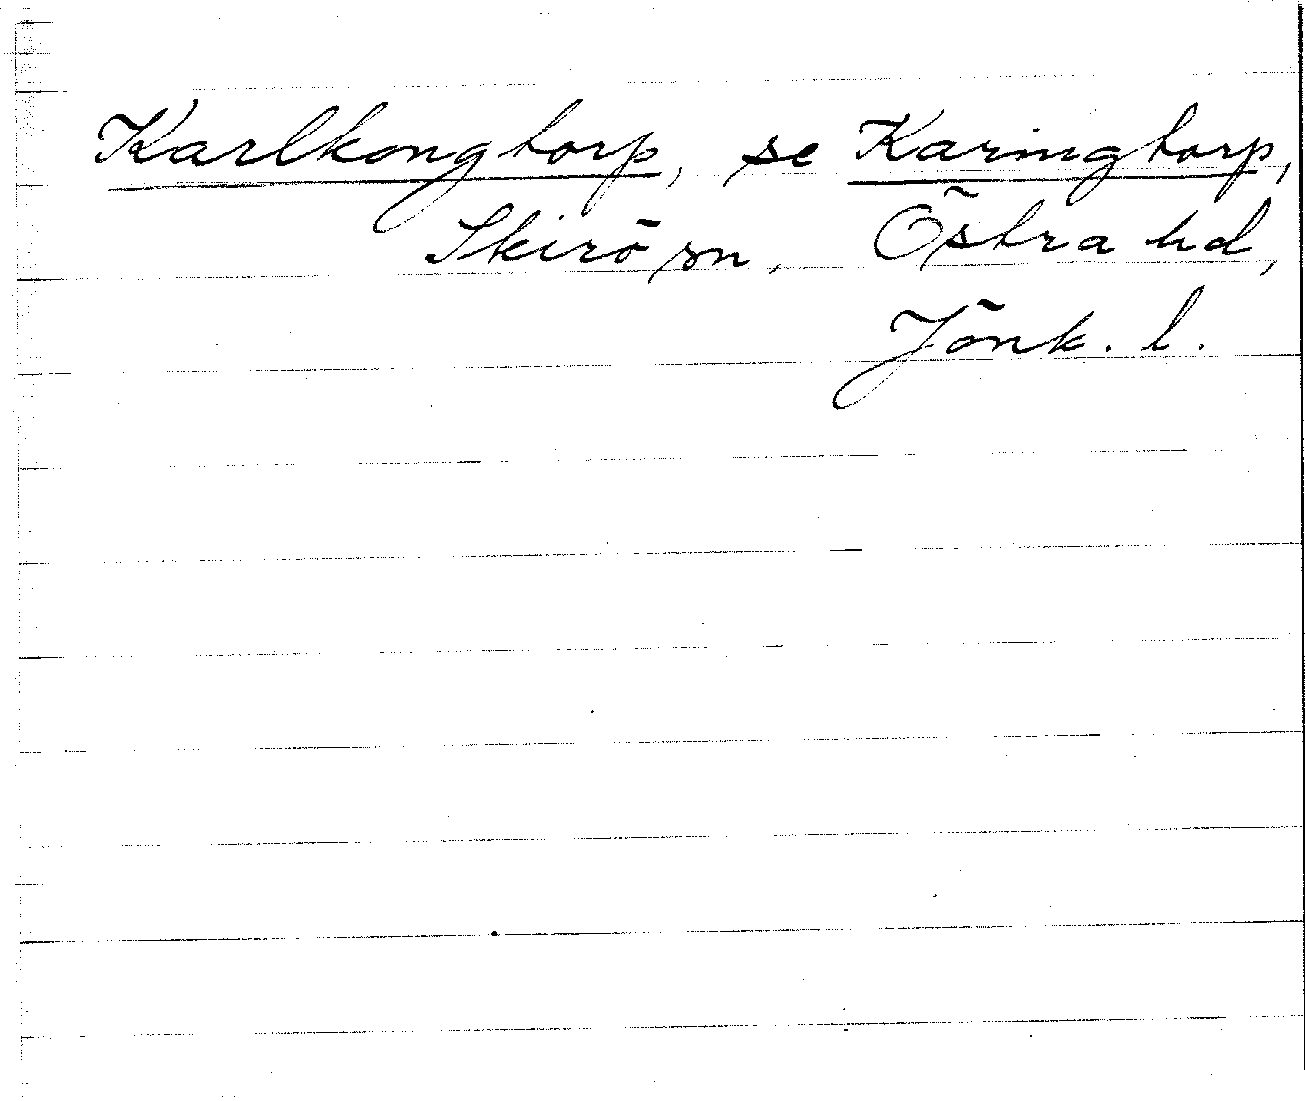 Karlkongtorp, se Karingtorp,
Skirö sn, Östra hd,
Jönk. l.